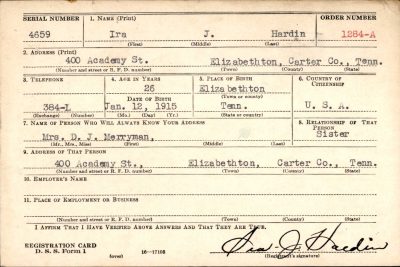 SERIAL NUMBER 1. NAME (Print) ORDER NUMBER
4659 Ira J. Hardin 1284-A
(First) (Middle) (Last)
2. ADDRESS (Print)
400 Academy St. Elizabethton, Carter Co., Tenn.
(Number and street or R. F. D. number) (Town) (County) (State)
3. TELEPHONE 4. AGE IN YEARS 5. PLACE OF BIRTH 6. COUNTRY OF CITIZENSHIP
26 Elizabethton
DATE OF BIRTH (Town or county)
384-L Jan. 12, 1915 Tenn. U. S. A.
(Exchange) (Number) (Mo.) (Day) (Yr.) (State or country)
7. NAME OF PERSON WHO WILL ALWAYS KNOW YOUR ADDRESS 8. RELATIONSHIP OF THAT PERSON
Mrs. D. J. Merryman, Sister
(Mr., Mrs., Miss) (First) (Middle) (Last)
9. ADDRESS OF THAT PERSON
400 Academy St., Elizabethton, Carter Co., Tenn.
(Number and street or R. F. D. number) (Town) (County) (State)
10. EMPLOYER'S NAME
11. PLACE OF EMPLOYMENT OR BUSINESS
(Number and street or R. F. D. number) (Town) (County) (State)
I AFFIRM THAT I HAVE VERIFIED ABOVE ANSWERS AND THAT THEY ARE TRUE.
REGISTRATION CARD
D. S. S. Form 1 (over) 16—17105 Ira J. Hardin
(Registrant's signature)